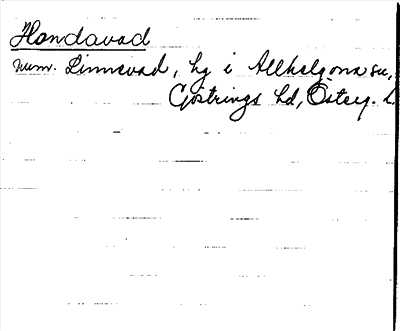 Handavad
num. Linnevad, hg i Allhelgona sn,
Göstrings hd, Österg. l.